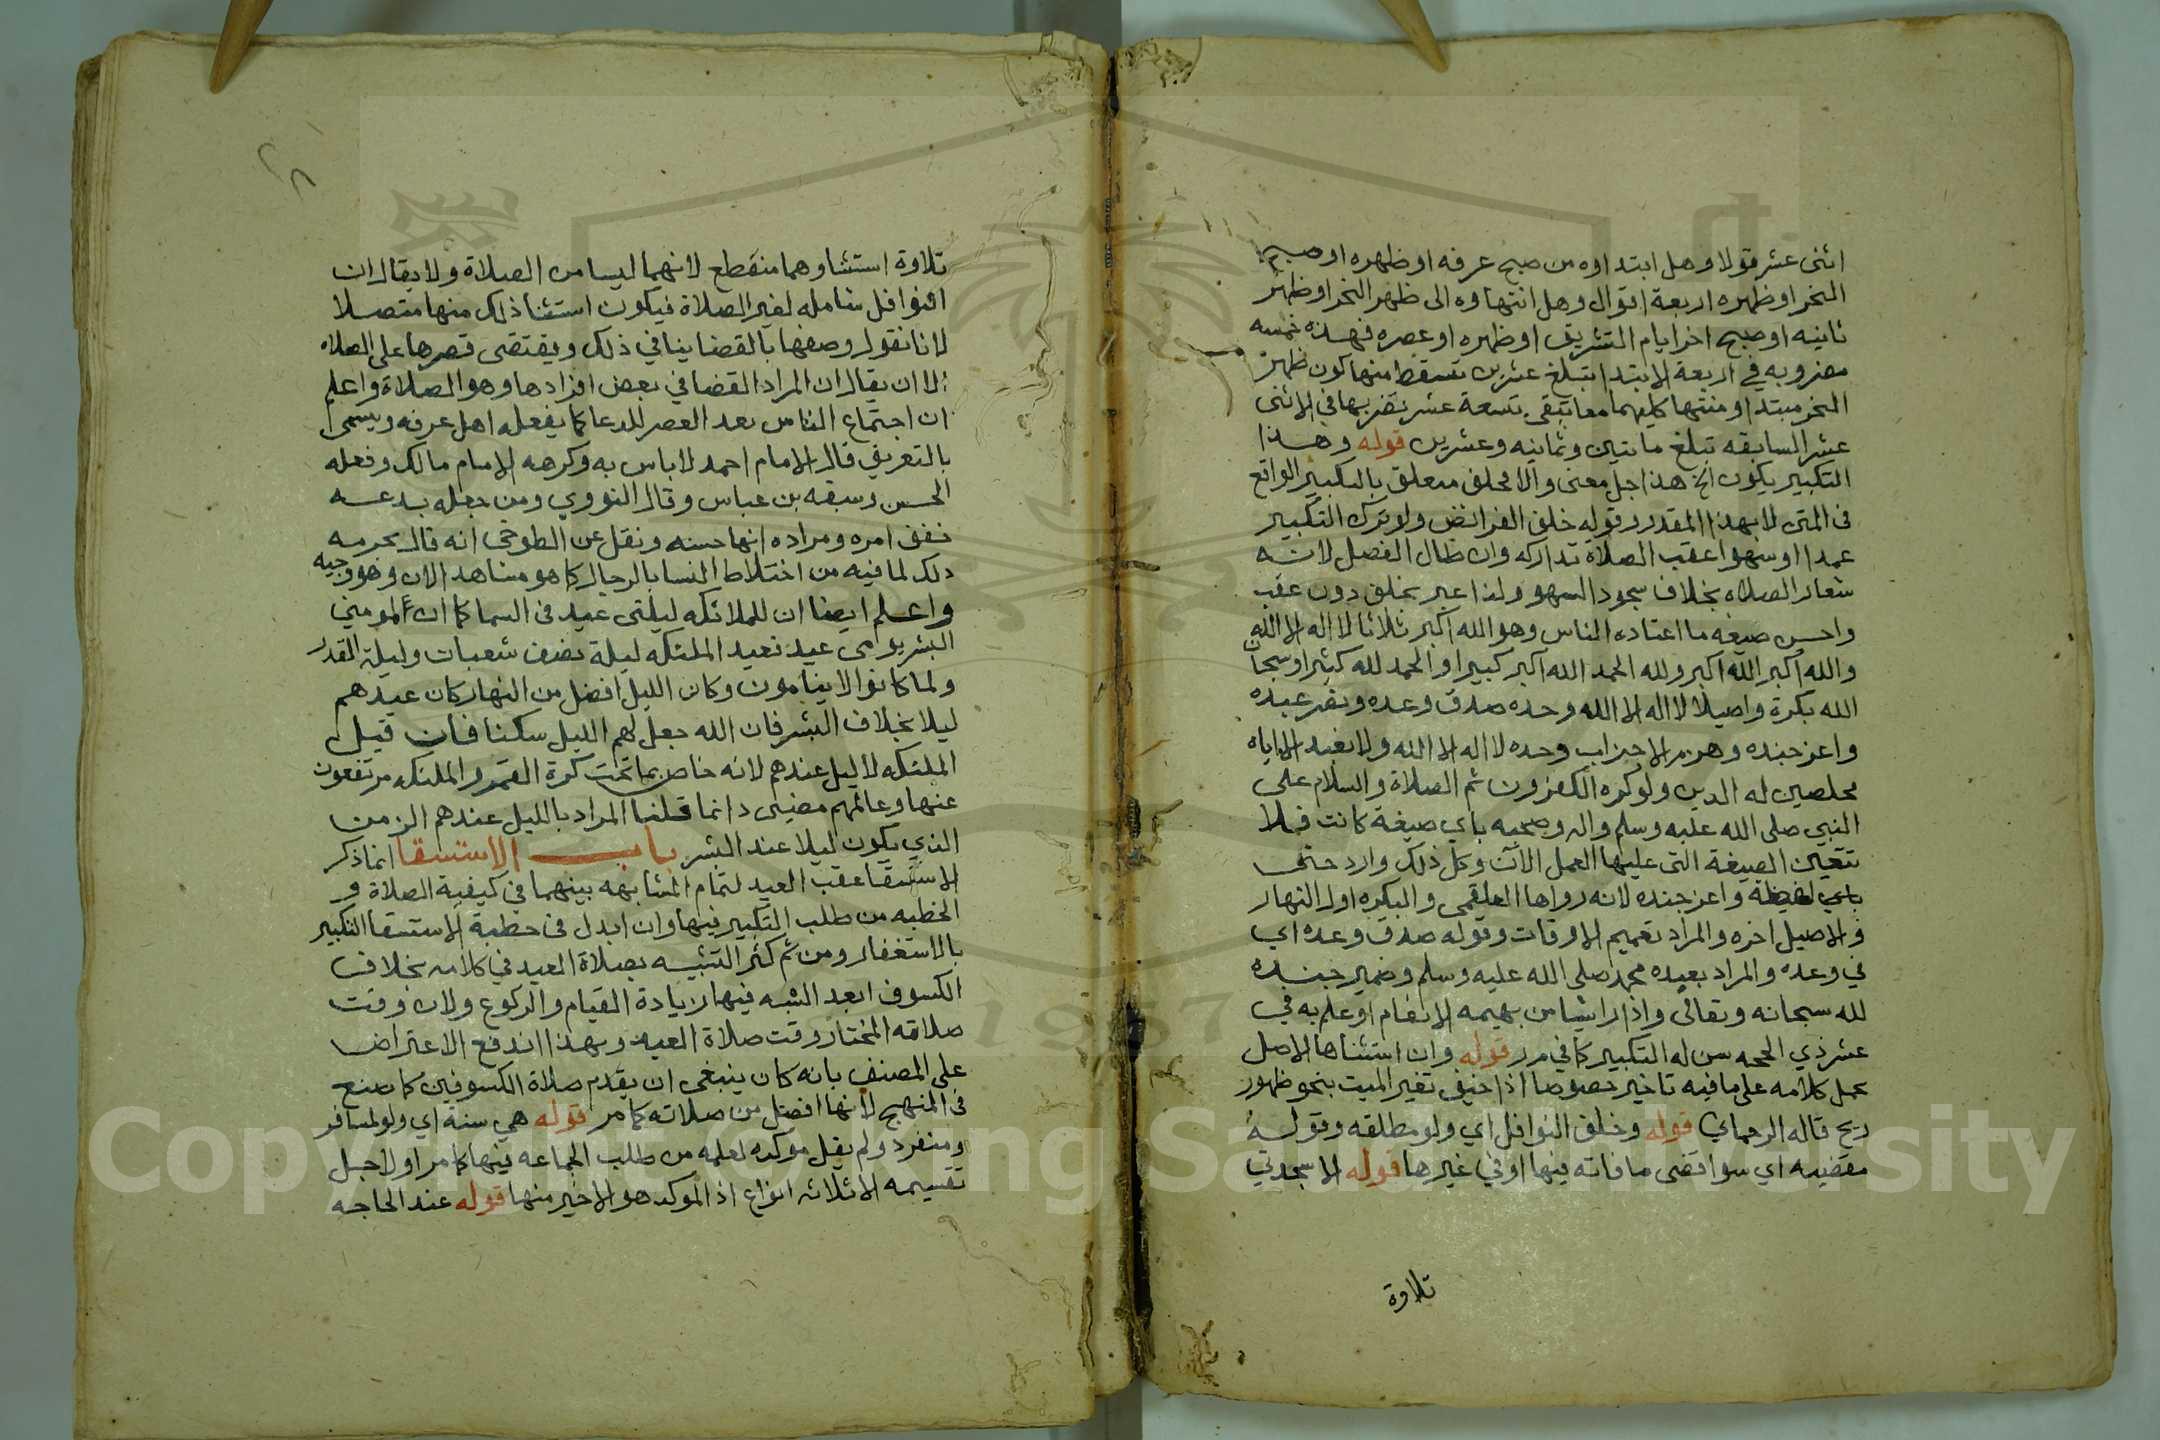 اثنى عشر قولا وهل ابتداوه من صبح عرفه او ظهره او صبح
النحر او ظهره اربعة اقوال وهل انتهاوه الى ظهر النحر او ظهر
ثانيه او صبح اخر ايام التشريق او ظهره او عصره فهذه خمسه
مضروبه في اربعة الابتدا تبلغ عشرين تسقط منها كون ظهر
النحر مبتدا و منتها كليهما معا يبقى تسعة عشر تضربها في الاثنى
عشر السابقه تبلغ مايتين وثمانيه وعشرين قوله وهذا
التكبير يكون الخ هذا حل معنى والا فخلف متعلق بالتكبير الواقع
فى المتن لا بهذا المقدر وقوله خلف الفرائض ولو ترك التكبير
عمدا او سهوا عقب الصلاة تداركه وان طال الفصل لانه
شعار الصلاه بخلاف سجود السهو ولذا عبر بخلف دون عقب
واحسن صيغه ما اعتاده الناس وهو الله اكبر ثلاثا لا اله الا الله
والله اكبر الله اكبر ولله الحمد الله اكبر كبيرا و الحمد لله كثيرا وسبحان
الله بكرة واصيلا لا اله الا الله وحده صدق وعده ونصر عبده
واعز جنده وهزم الاحزاب وحده لا اله الا الله ولا نعبد الا اياه
مخلصين له الدين ولو كره الكفرون ثم الصلاة والسلام على
النبي صلى الله عليه وسلم واله وصحبه باي صيغة كانت فلا
تتعين الصيغة التى عليها العمل الآن وكل ذلك وارد حتى
لفظة واعز جنده لانه رواها العلقمى والبكره اول النهار
والاصيل اخره والمراد تعميم الاوقات وقوله صدق وعده اي
في وعده والمراد بعبده محمد صلى الله عليه وسلم وضمير جنده
لله سبحانه وتعالى واذا راى شيا من بهيمه الانعام او علم به في
عشر ذي الحجه سن له التكبير كما في مر قوله وان استثناها الاصل
حمل كلامه على ما فيه تاخير خصوصا اذا خيف تغير الميت بنحو ظهور
ريح قاله الرحماني قوله وخلف النوافل اي ولو مطلقه وقوله
مقضيه اي سوا قضى ما فاته فيها او في غيرها قوله الا سجدتي
تلاوة
تلاوة استثناوهما منقطع لانهما ليسا من الصلاة ولا يقال ان
النوافل شامله لغير الصلاة فيكون استثنا ذلك منها متصلا
لانا نقول وصفها بالقضا ينافي ذلك ويقتضى قصرها على الصلاه
الا ان يقال ان المراد القضا في بعض افرادها وهو الصلاة واعلم
ان اجتماع الناس بعد العصر للدعا كما يفعله اهل عرفه ويسمى
بالتعريف قال الامام احمد لا باس به وكرهه الامام مالك وفعله
الحسن وسبقه بن عباس وقال النووي ومن جعله بدعه
خفف امره ومراده انها حسنه ونقل عن الطوخى انه قال بحرمه
ذلك لما فيه من اختلاط النسا بالرجال كما هو مشاهد الان وهو وجيه
واعلم ايضا ان للملائكه ليلتى عيد فى السما كما ان للمومنين
البشر يومى عيد فعيد الملئكه ليلة نصف شعبان وليلة القدر
ولما كانوا لا ينامون وكان الليل افضل من النهار كان عيدهم
ليلا بخلاف البشر فان الله جعل لهم الليل سكنا فان قيل
الملئكه لا ليل عندهم لانه خاص بما تحت كرة القمر والملئكه مرتفعون
عنها وعالمهم مضيى دائما قلنا المراد بالليل عندهم الزمن
الذي يكون ليلا عند البشر باب الاستسقا انما ذكر
الاستسقا عقب العيد لتمام المشابهه بينهما في كيفية الصلاة و
الخطبه من طلب التكبير فيها وان ابدل فى خطبة الاستسقا التكبير
بالاستغفار ومن ثم كثر التشبيه بصلاة العيد في كلامه بخلاف
الكسوف ابعد الشبه فيها لزيادة القيام والركوع ولان وقت
صلاته المختار وقت صلاة العيد وبهذا اندفع الاعتراض
على المصنف بانه كان ينبغى ان يقدم صلاة الكسوفين كما صنع
فى المنهج لانها افضل من صلاته كما مر قوله هي سنة اي ولو لمسافر
ومنفرد ولم يقل موكده لعلمه من طلب الجماعه فيها كما مر او لاجل
تقسيمه الا ثلاثه انواع اذ الموكد هو الاخير منها قوله عند الحاجه
Copyright © King Saud University
1957